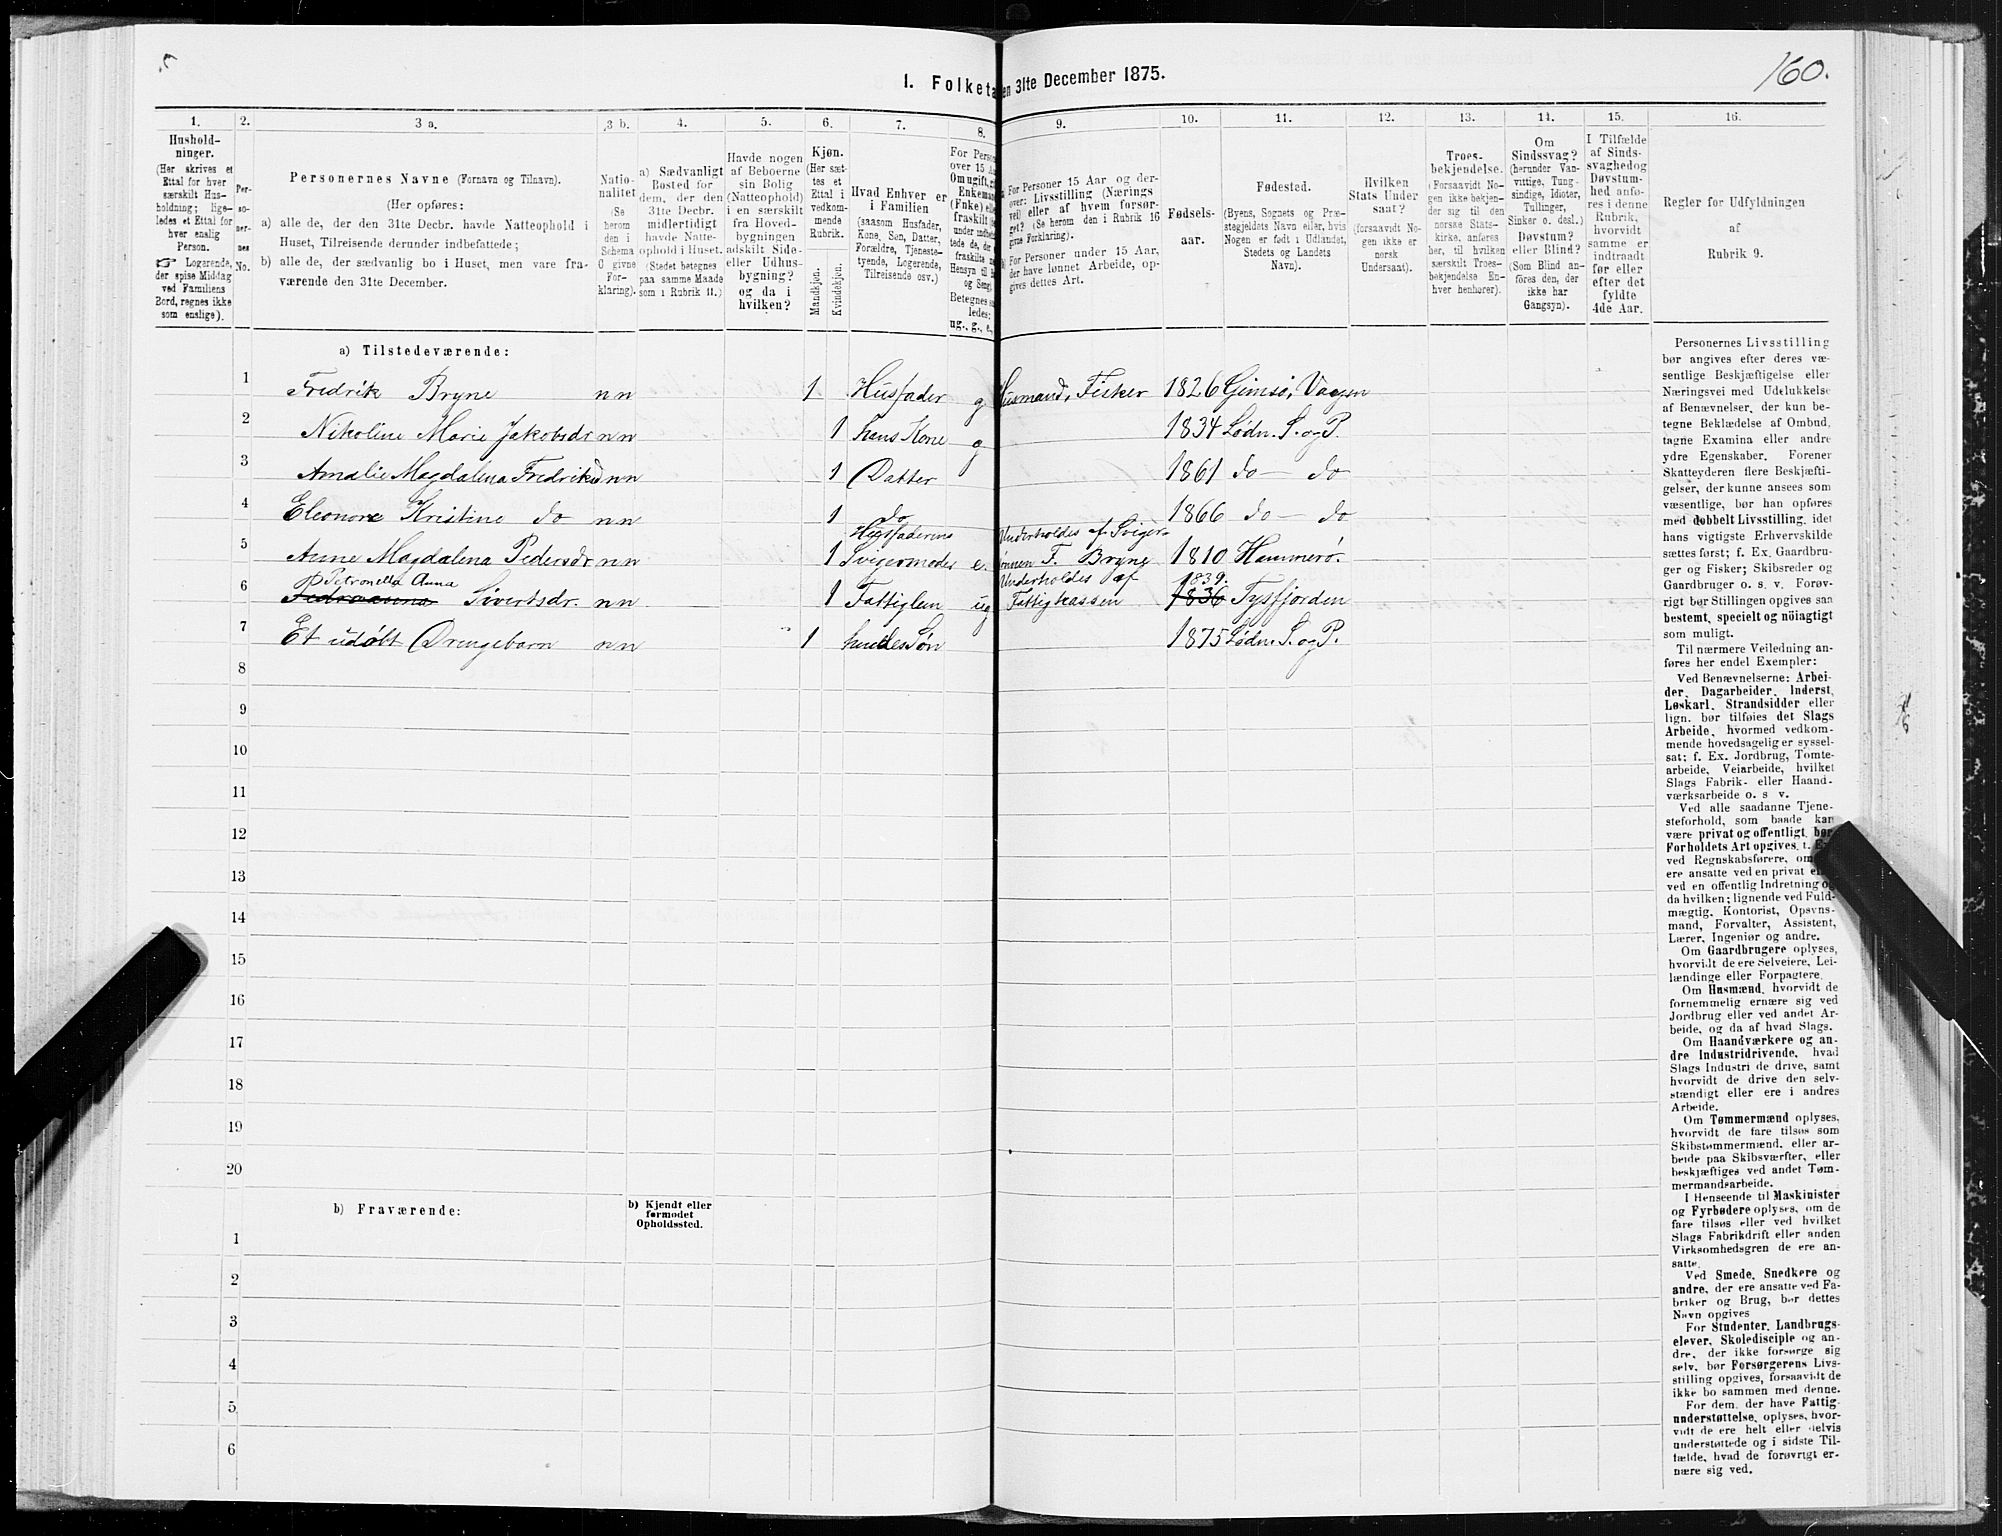 160.
I. Folketa en 31te December 1875.
1. 2. 3 a. 3 b. 4. 5. 6. 7. 8. 9. 10. 11. 12. 13. 14. 15. 16.
Hushold-
ninger.
(Her skrives et
Ettal for hver
særskilt Hus-
holdning; lige-
ledes et Ettal for
hver enslig
Person.
☞ Logerende,
der spise Middag
ved Familiens
Bord, regnes ikke
som enslige).
Per-
so-
ner-
nes
No.
Personernes Navne (Fornavn og Tilnavn).
(Her opføres:
a) alle de, der den 31te Decbr. havde Natteophold i
Huset, Tilreisende derunder indbefattede;
b) alle de, der sædvanlig bo i Huset, men vare fra-
værende den 31te December.
Natio-
nalitet
(Se
herom
den i
Schema
O givne
For-
klaring).
a) Sædvanligt
Bosted for
dem, der den
31te Decbr.
midlertidigt
havde Natte-
ophold i Huset.
(Stedet betegnes
paa samme Maade
som i Rubrik 11.)
Havde nogen
af Beboerne
sin Bolig
(Natteophold)
i en særskilt
fra Hoved-
bygningen
adskilt Side-
eller Udhus-
bygning?
og da i
hvilken?
Kjøn.
(Her sæt-
tes et
Ettal i
vedkom-
mende
Rubrik.
Mandkjøn.
Kvindekjøn.
Hvad Enhver er
i Familien
(saasom Husfader,
Kone, Søn, Datter,
Forældre, Tjeneste-
tyende, Logerende,
Tilreisende osv.)
For Perso
over 15 A
Om ugift, g
Enkeman
(Enke) el
fraskilt
under indbe
tede de, der
fraskilte
Hensyn til B
og Seng
Betegnes s
ledes:
ug., g., e.,
For Personer 15 Aar og der-
over: Livsstilling (Nærings
vei) eller af hvem forsør-
get? (Se herom den i Rubrik 16
givne Forklaring).
For Personer under 15 Aar,
der have lønnet Arbeide, op-
gives dettes Art.
Fødsels-
aar.
Fødested.
(Byens, Sognets og Præ-
stegjeldets Navn eller, hvis
Nogen er født i Udlandet,
Stedets og Landets
Navn).
Hvilken
Stats Under
saat?
(forsaavidt No-
gen ikke er
norsk
Undersaat).
Troes-
bekjendelse.
(Forsaavidt No-
gen ikke bekjen-
der sig til den
norske Stats-
kirke, anføres
her, til hvilken
særskilt Troes-
bekjendelse En-
hver henhører).
Om
Sindssvag?
(herunder Van-
vittige, Tung-
sindige, Idioter,
Tullinger,
Sinker o. desl.)
Døvstum?
eller Blind?
(Som Blind an-
føres den, der
ikke har
Gangsyn).
I Tilfælde
af Sinds-
svaghed og
Døvstum-
hed anfø-
res i denne
Rubrik,
hvorvidt
samme er
indtraadt
før eller
efter det
fyldte
4de Aar.
Regler for Udfyldningen
af
Rubrik 9.
a) Tilstedeværende:
1 Fredrik Bryne n n 1 Husfader g Husmand, Fisker 1826 Gimsø, Vaagen
2 Nikoline Marie Jakobsdr n n 1 hans Kone g 1834 Lødn. S. og P.
3 Amalie Magdalena Fredriksd n n 1 Datter 1861 do — do
4 Eleonore Kristine do n n 1 do 1866 do — do
Husfaderens Underholdes af Sviger-
5 Anne Magdalena Pedersdr n n 1 Svigermoder e. sønnen F. Bryne 1810 Hammerø.
Petronella Anna Underholdes af 1839.
6 Sivertsdr. n n 1 Fattiglem ug Fattigkassen 1836 Tysfjorden
7 Et udøbt Drengebarn n n 1 hendes Søn 1875 Lødn. S. og P.
8
9
10
11
12
13
14
15
16
17
18
19
20
b) Fraværende:
b) Kjendt eller
formodet
Opholdssted.
1
2
3
4
5
6
Personernes Livsstilling
bør angives efter deres væ-
sentlige Beskjæftigelse eller
Næringsvei med Udelukkelse
af Benævnelser, der kun be-
tegne Beklædelse af Ombud,
tagne Examina eller andre
ydre Egenskaber. Forener
Skatteyderen flere Beskjæfti-
gelser, der kunne ansees som
væsentlige, bør han opføres
med dobbelt Livsstilling, idet
hans vigtigste Erhvervskilde
sættes først; f. Ex. Gaardbru-
ger og Fisker; Skibsreder og
Gaardbruger o. s. v. Forøv-
rigt bør Stillingen opgives saa
bestemt, specielt og nöiagtigt
som muligt.
Til nærmere Veiledning an-
føres her endel Exempler:
Ved Benævnelserne: Arbei-
der, Dagarbeider, Inderst,
Løskarl, Strandsidder eller
lign. bør tilføies det Slags
Arbeide, hvormed vedkom-
mende hovedsagelig er syssel-
sat; f. Ex. Jordbrug, Tomte-
arbeide, Veiarbeide, hvilket
Slags Fabrik- eller Haand-
værksarbeide o. s v.
Ved alle saadanne Tjene-
steforhold, som baade kan
være privat og offentligt, bør
Forholdets Art opgives, f. Ex
ved Regnskabsførere, om
ere ansatte ved en privat el
ved en offentlig Indretning og
da hvilken; lignende ved Fuld-
mægtig, Kontorist, Opsyns-
mand, Forvalter, Assistent,
Lærer, Ingeniør og andre.
Om Gaardbrugere oplyses,
hvorvidt de ere Selveiere, Lei-
lændinge eller Forpagtere.
Om Husmænd, hvorvidt de
fornemmelig ernære sig ved
Jordbrug eller ved andet Ar-
beide, og da af hvad Slags.
Om Haandværkere og an-
dre Industridrivende, hvad
Slags Industri de drive, samt
hvorvidt de drive den selv-
stændigt eller ere i andres
Arbeide.
Om Tømmermænd oplyses,
hvorvidt de fare tilsøs som
Skibstømmermænd, eller ar-
beide paa Skibsværfter, eller
beskjæftiges ved andet Tøm-
mermandsarbeide.
I Henseende til Maskinister
og Fyrbødere oplyses, om de
fare tilsøs eller ved hvilket
Slags Fabrikdrift eller anden
Virksomhedsgren de ere an-
satte.
Ved Smede, Snedkere og
andre, der ere ansatte ved Fa-
briker og Brug, bør dettes
Navn opgives
For Studenter, Landbrugs-
elever, Skoledisciple og an-
dre, der ikke forsørge sig
selv, bør Forsørgerens Livs-
stilling opgives, forsaavidt de
ikke bo sammen med denne.
For dem, der have Fattig-
understøttelse, oplyses, hvor-
vidt de ere helt eller delvis
understøttede og i sidste Til-
fælde, hvad de forøvrigt er-
nære sig ved.